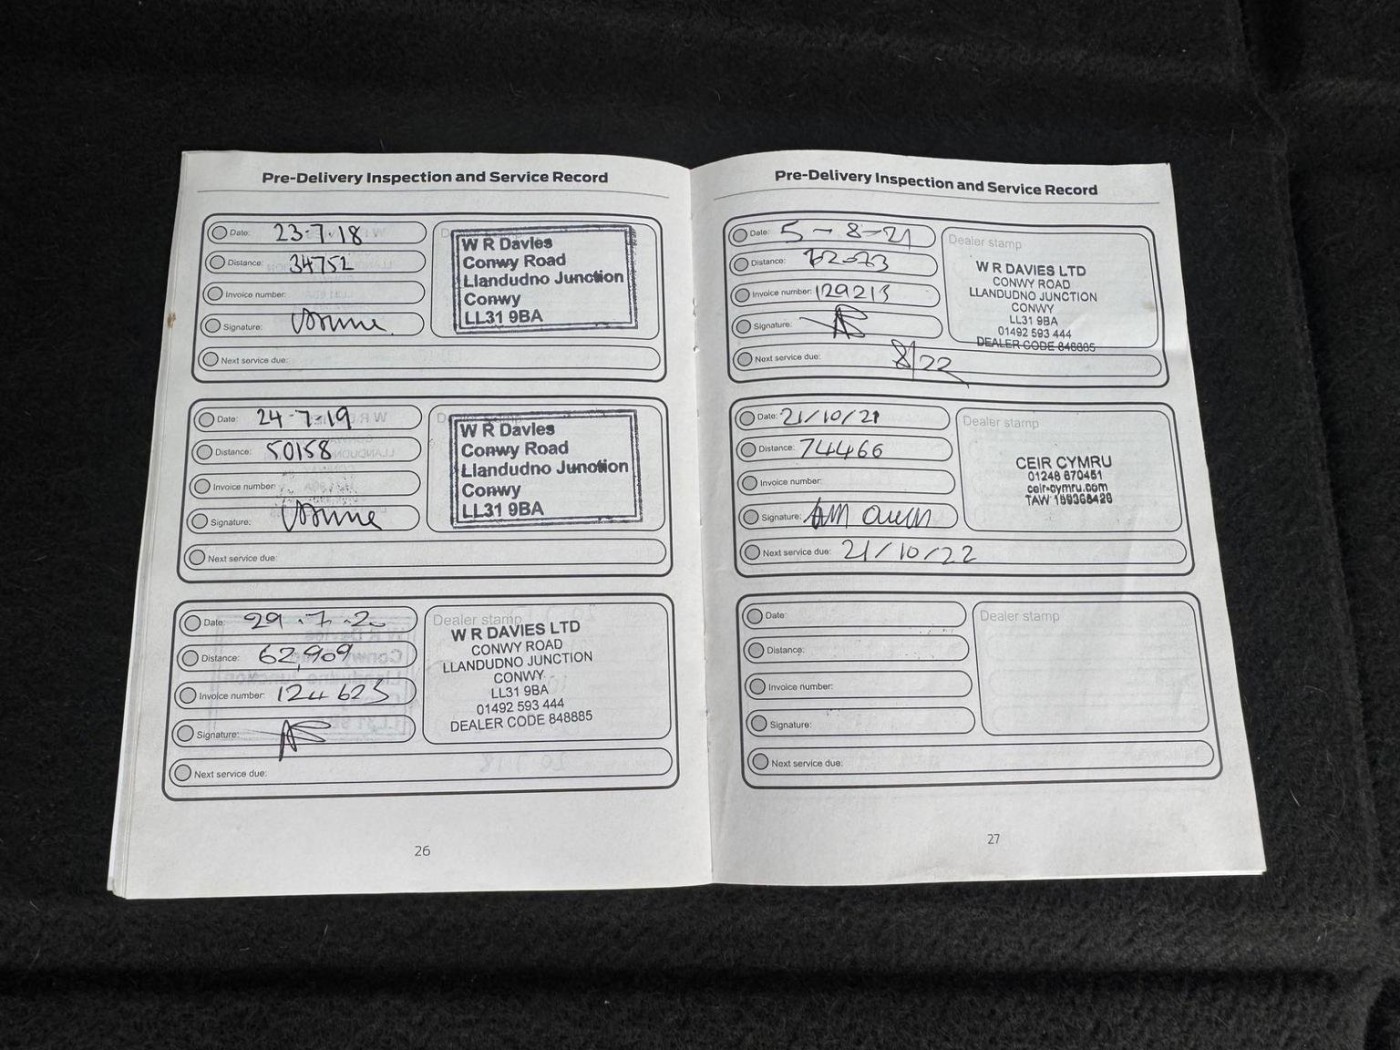 Pre-Delivery Inspection and Service Record
Date: 23-7-18
Distance: 34752
Invoice number:
Signature:
Next service due:
W R Davies
Conwy Road
Llandudno Junction
Conwy
LL31 9BA
Date: 24-7-19
Distance: 50158
Invoice number:
Signature:
Next service due:
W R Davies
Conwy Road
Llandudno Junction
Conwy
LL31 9BA
Date: 29.7.20
Distance: 62,909
Invoice number: 124623
Signature:
Next service due:
Dealer stamp
W R DAVIES LTD
CONWY ROAD
LLANDUDNO JUNCTION
CONWY
LL31 9BA
01492 593 444
DEALER CODE 848885
26
Pre-Delivery Inspection and Service Record
Date: 5-8-21
Distance:
Invoice number: 129213
Signature:
Next service due: 8/22
Dealer stamp
W R DAVIES LTD
CONWY ROAD
LLANDUDNO JUNCTION
CONWY
LL31 9BA
01492 593 444
DEALER CODE 848885
Date: 21/10/21
Distance: 74466
Invoice number:
Signature:
Next service due: 21/10/22
Dealer stamp
CEIR CYMRU
01248 670451
ceir-cymru.com
TAW 159368426
Date:
Distance:
Invoice number:
Signature:
Next service due:
Dealer stamp
27